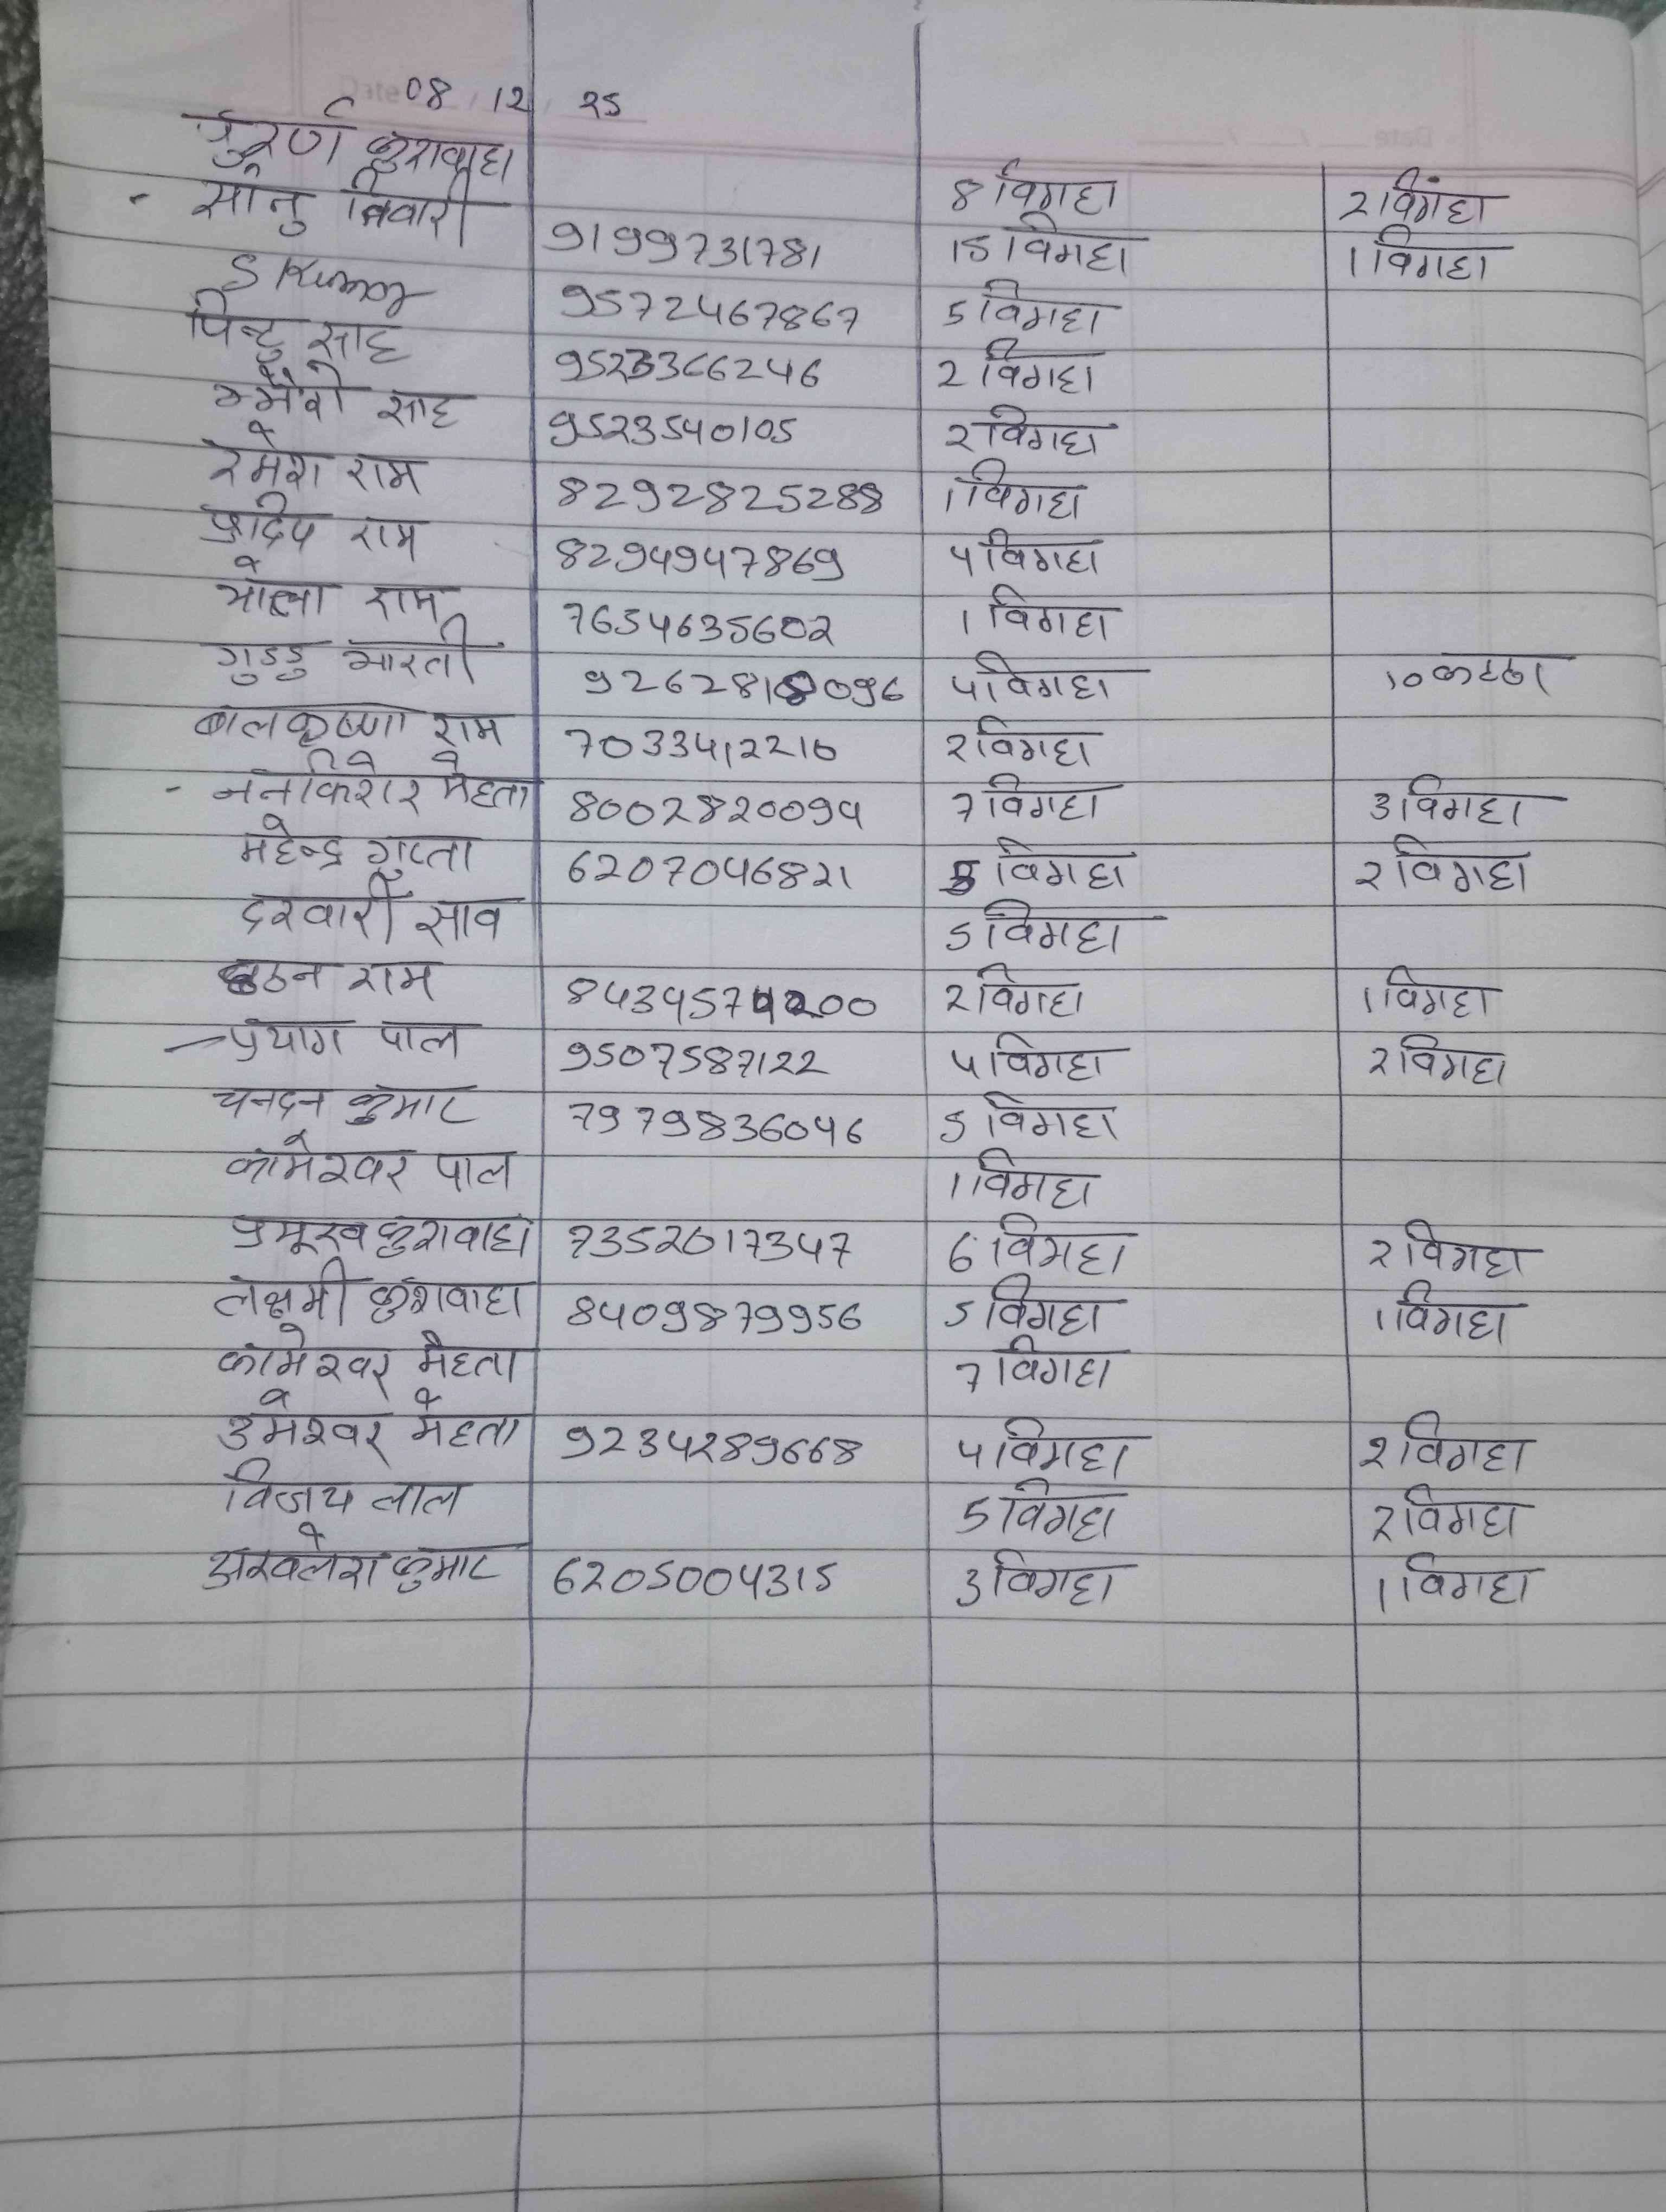 Date 08 / 12 / 25
पुरर्ण कुशवाहा 8 विगहा 2 विगंहा
- सोनु तिवारी 9199731781 15 विगहा 1 विगहा
S Kumar 9572467867 5 विगहा
पिन्टु साह 9523366246 2 विगहा
साह 9523540105 2 विगहा
रमेश राम 8292825288 1 विगहा
प्रदिप राम 8294947869 4 विगहा
भोला राम 7654635602 1 विगहा
गुडडु भारती 9262818096 4 विगहा 10 कटठा
बालकृष्णा राम 7033412210 2 विगहा
- ननकिशोर मेहता 8002820094 7 विगहा 3 विगहा
महेन्द्र गुप्ता 6207046821 5 विगहा 2 विगहा
दरवारी साव 5 विगहा
राम 2 विगहा 1 विगहा
प्रयाग पाल 9507587122 4 विगहा 2 विगहा
चनदन कुमार 7979836046 5 विगहा
कामेश्वर पाल 1 विगहा
प्रमूख कुशवाहा 7352017347 6 विगहा 2 विगहा
लक्षमी कुशवाहा 8409879956 5 विगहा 1 विगहा
कामेश्वर मेहता 7 विगहा
उमेश्वर मेहता 9234289668 4 विगहा 2 विगहा
विजय लाल 5 विगहा 2 विगहा
अखलेश कुमार 6205004315 3 विगहा 1 विगहा